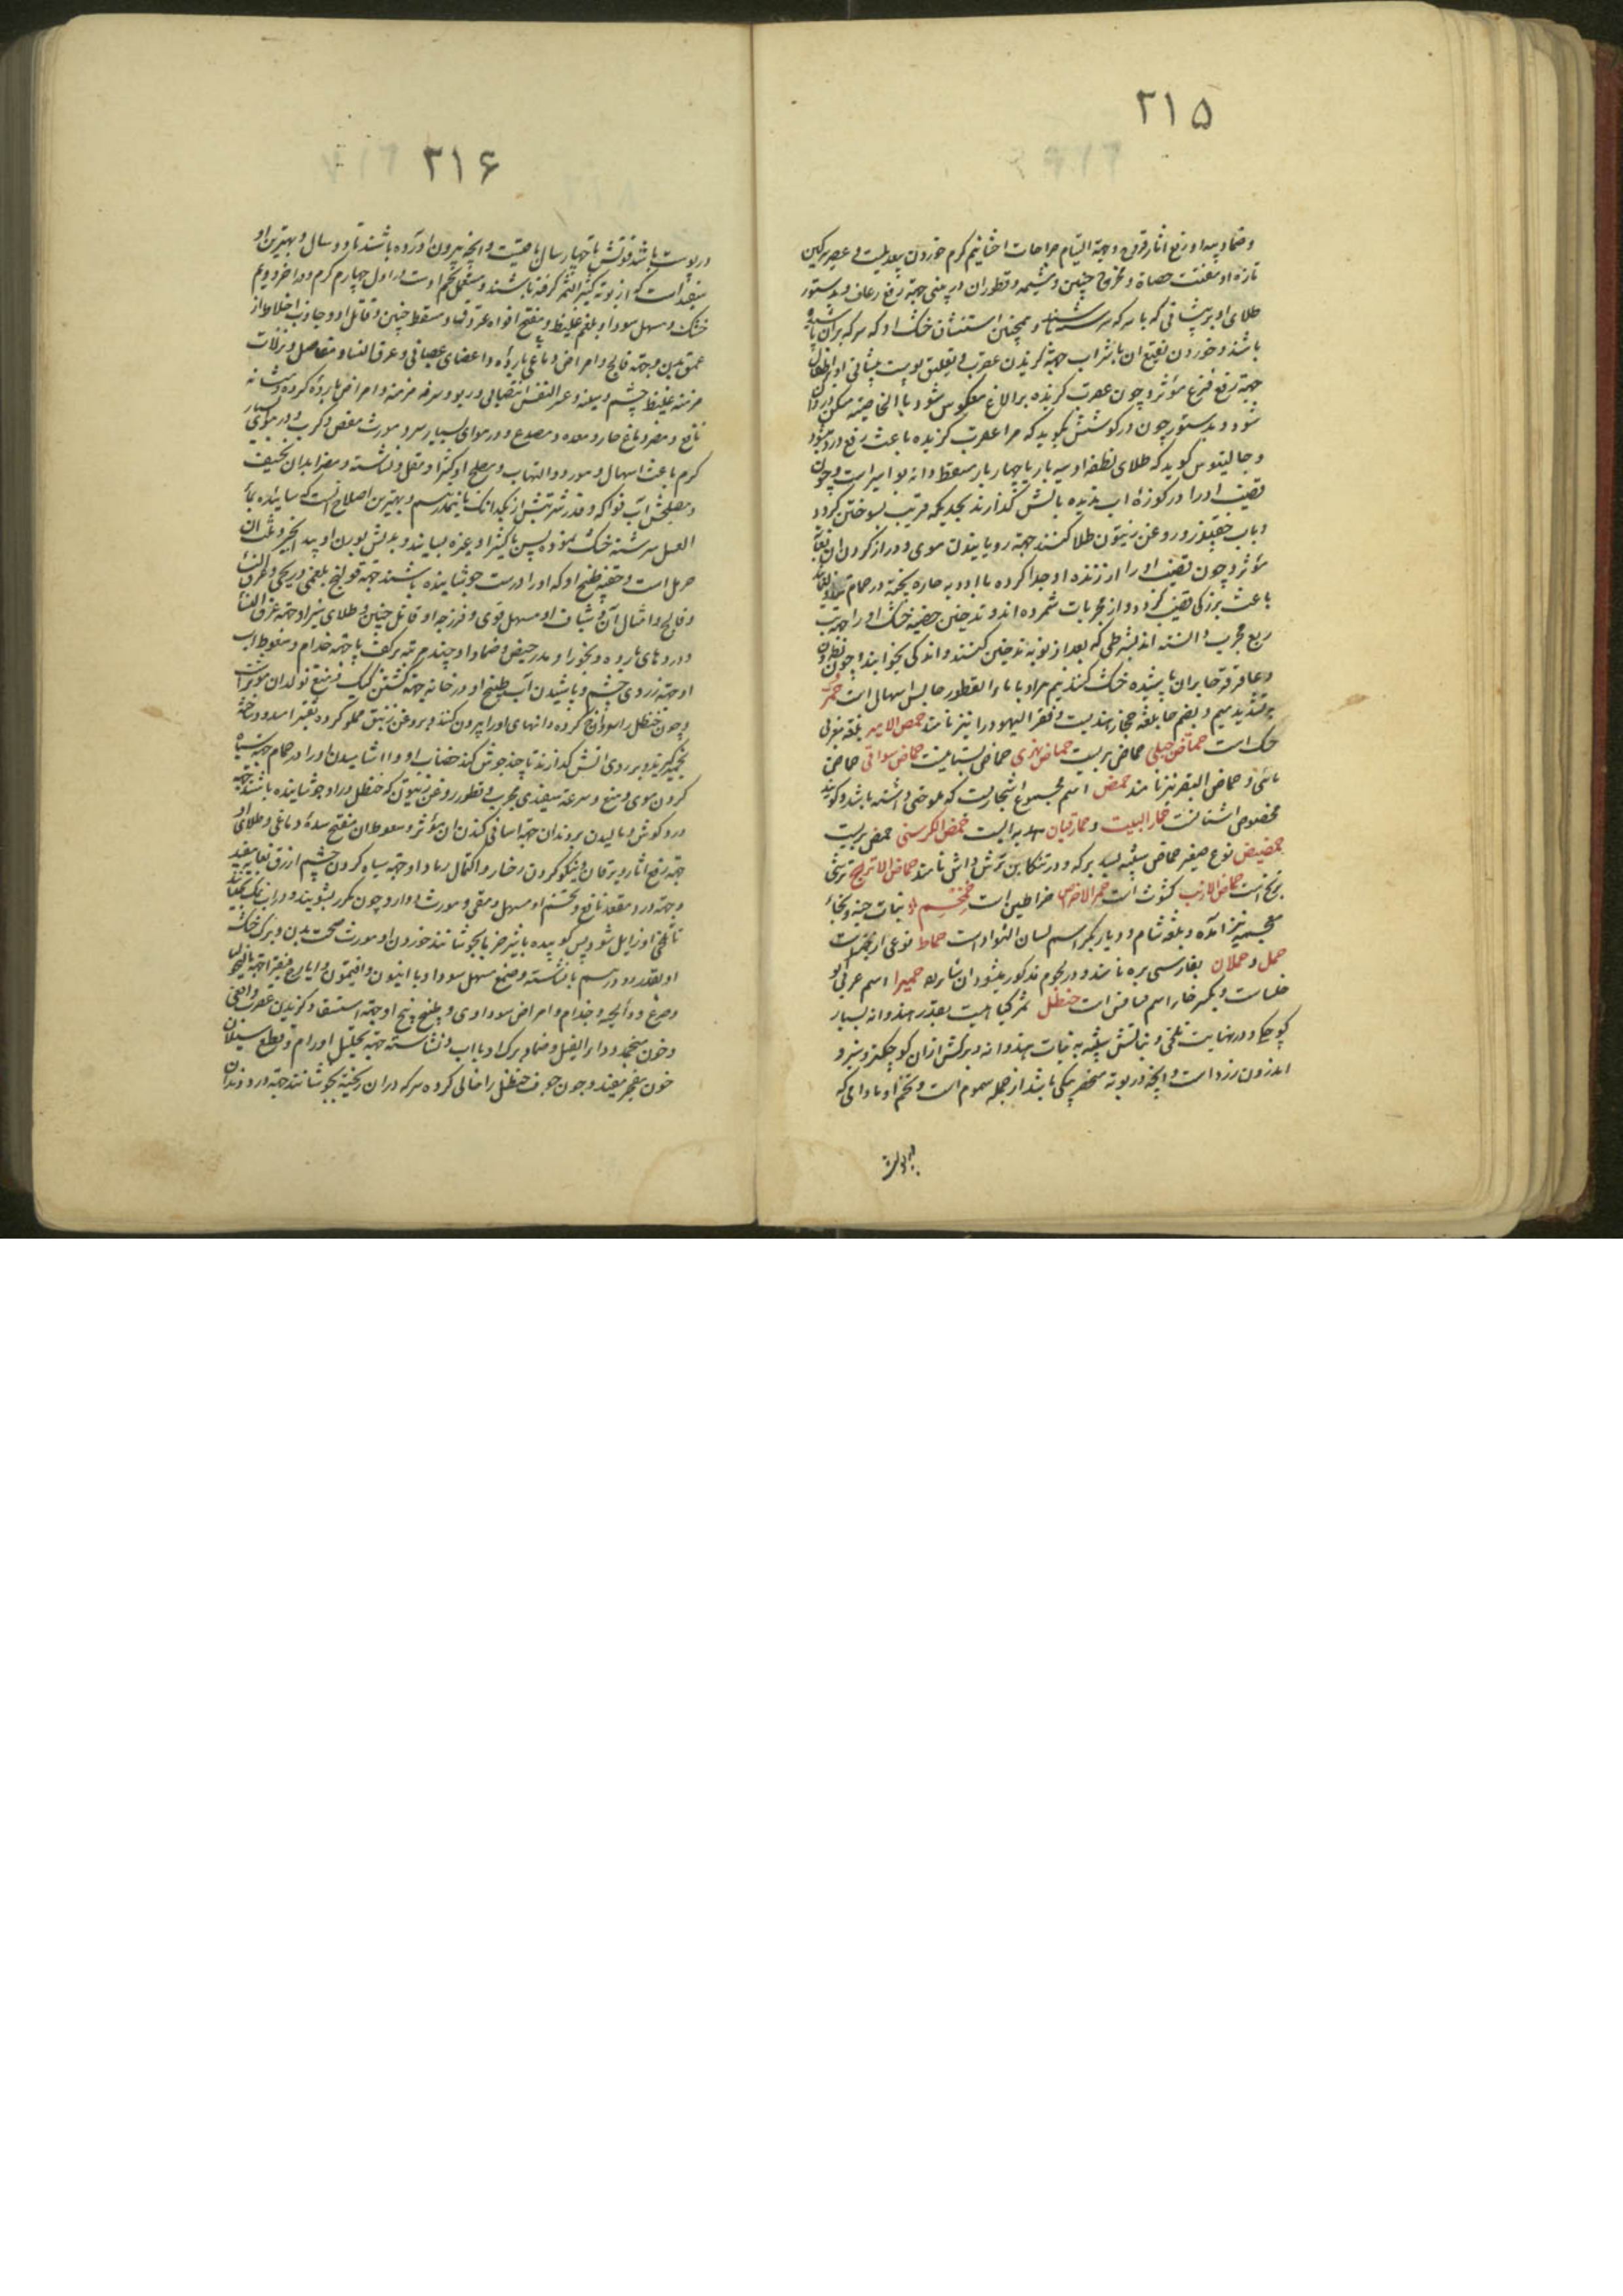 ۲۱۵
وضماد پیه او رفع اثار قروح وجهة التیام جراحات
تازه او مفتت حصاة و مخرج جنین و مشیمه و قطور ان در بینی جهة رفع رعاف و بدستور
طلای او بر پیشانی که با سرکه سرشته باشند و همچنین استنشاق خشک او که سرکه بران
باشد و خوردن نقیع ان با شراب جهة گزیدن عقرب و تعلیق پوست پیشانی او بر اطفال
جهة رفع فزع مؤثر و چون عقرب گزیده بر الاغ معکوس شود بالخاصیه مسکن درد ان
شود و بدستور چون در گوشش بگوید که مرا عقرب گزیده باعث رفع درد میشود
و جالینوس گوید که طلای نطفه او سه بار یا چهار بار مسقط دانه بواسیر است و چون
قضیب او را در کوزه اب ندیده بالش گذارند بحدیکه قریب بسوختن گردد
و باب در روغن زیتون طلا کنند جهة رویانیدن موی و دراز کردن ان بغایة
مؤثر و چون قضیب او را از زنده او جدا کرده با ادویه حاره پخته در حمام
باعث بزرگی قضیب گردد و از مجربات شمرده اند و تدخین خصیه خشک او را جهة تب
ربع مجرب دانسته اند بشرطی که بعد از نوبه تدخین کنند و اندکی بخوابند و چون
و عاقرقرحا بران پاشیده خشک کنند نیم مثقال او با ماء القطور حابس اسهال است حمر
بتشدید میم و بضم حا بلغه حجاز هندیست و فقر الیهود را نیز نامند حمص الامیر بلغه مغربی
حسک است حماض جبلی حماض بریست حماض نهری حماض بستانیست حماض سواقی حماض
مائی و حماض البقر نیز نامند حمض اسم مجموع اشجاریست که ملوحتی داشته باشد و گویند
مخصوص اشنانست حمار البیت و حمار قبان هدبه است حمص الکرسنی حمص بریست
حمضیض نوع صغیر حماض شبیه بسه برکه و در تنکابن ترش واش نامند حماض الاترج ترشی
ترنج است حماض الارنب کشوث است حمر الارض خراطین است حمخم نبات حبه و بخاء
معجمه نیز آمده و بلغه شام و دیار بکر اسم لسان الثور است حماط نوعی از تین است
حمل و حملان بفارسی بره نامند و در لحوم مذکور میشود ان شاء الله حمیرا اسم عربی ابو
خلسا است و بکسر خا اسم است حنظل ثمر گیاهیست بقدر هندوانه بسیار
کوچکی و در نهایت تلخی و نباتش شبیه به نبات هندوانه و برگش ازان کوچکتر و سبز و
اندرون زرد است و انچه در بوته منحصر بیکی باشد از جمله سموم است و تخم او مادامی که
در پوست
۲۱۶
در پوست باشد قوتش تا چهار سال باقیست و انچه بیرون اورده باشند تا دو سال و بهترین او
سفید است که از بوته کثیر الثمر گرفته باشند و مستعمل شحم اوست در اول چهارم گرم و در اخر دویم
خشک و مسهل سودا و بلغم غلیظ و مفتح افواه عروق و مسقط جنین و قاتل او و جاذب اخلاط از
عمق بدن و جهة فالج و امراض دماغی بارده و اعضای عصبانی و عرق النسا و مفاصل و نزلات
مزمنه غلیظ چشم و سینه و عسر النفس انتصابی و ربو و سرفه مزمنه و امراض بارده گرده و مثانه
نافع و مضر دماغ حار و معده و مصدع و در هوای بسیار سرد مورث مغص و کرب و در هوای بسیار
گرم باعث اسهال دموی و التهاب و مصلح او کثیرا و مقل و نشاسته و مضر ابدان نحیف
و مصلحش اب فواکه و قدر شربتش از یکدانک تا نیمدرم و بهترین اصلاح انست که سائیده بماء
العسل سرشته خشک نموده پس با کثیرا و غیره بسایند و بدلش بوزن او بیدانجیر و ثلث ان
حرمل است و حقنه طبیخ او که او را درست جوشانیده باشند جهة قولنج بلغمی و ریحی و عرق النسا
و فالج و امثال آن و شیاف او مسهل قوی و فرزجه او قاتل جنین و طلای سبز او جهة عرق النسا
و دردهای بارده و بخور او مدر حیض و ضماد او چند مرتبه بر کف پا جهة جذام و سعوط اب
او جهة زردی چشم و پاشیدن آب طبیخ او در خانه جهة کشتن کیک و منع تولد ان مؤثر است
و چون حنظل را سوراخ کرده دانهای او را بیرون کنند و بروغن زنبق مملو کرده
بخمیر گیرند و بر روی اتش گذارند تا چند جوش کند خضاب او و اشامیدن او در حمام جهة سیاه
کردن موی و منع سرعة سفیدی مجرب و قطور روغن زیتون که حنظل در او جوشانیده باشند جهة
درد گوش و مالیدن بر دندان جهة اسانی کندن ان مؤثر و سعوط ان مفتح سده دماغی و طلای او
جهة رفع اثار و یرقان و نیکو کردن رخسار و اکتحال رماد او جهة سیاه کردن چشم ازرق بغایة مفید
و جهة درد مقعد نافع و تخم او مسهل و مقی و مورث دوار و چون مکرر بشویند و در اب نمک بگذارند
تا تلخی او زایل شود پس کوبیده با شیر خر یا بجوشانند خوردن او مورث صحت بدن و برگ خشک
او بقدر دو درم با نشاسته و صمغ مسهل سودا و با انیسون و افتیمون و ایارج فیقرا جهة مالیخولیا
و صرع و داء الحیه و جذام و امراض سوداوی و طبیخ بیخ او جهة استسقا و گزیدن عقرب و افعی
و خون منجمد و داء الفیل و ضماد برگ او با اب و نشاسته جهة تحلیل اورام و قطع سیلان
خون منفجر مفید و چون جوف حنظل را خالی کرده سرکه در ان ریخته بجوشانند جهة درد دندان